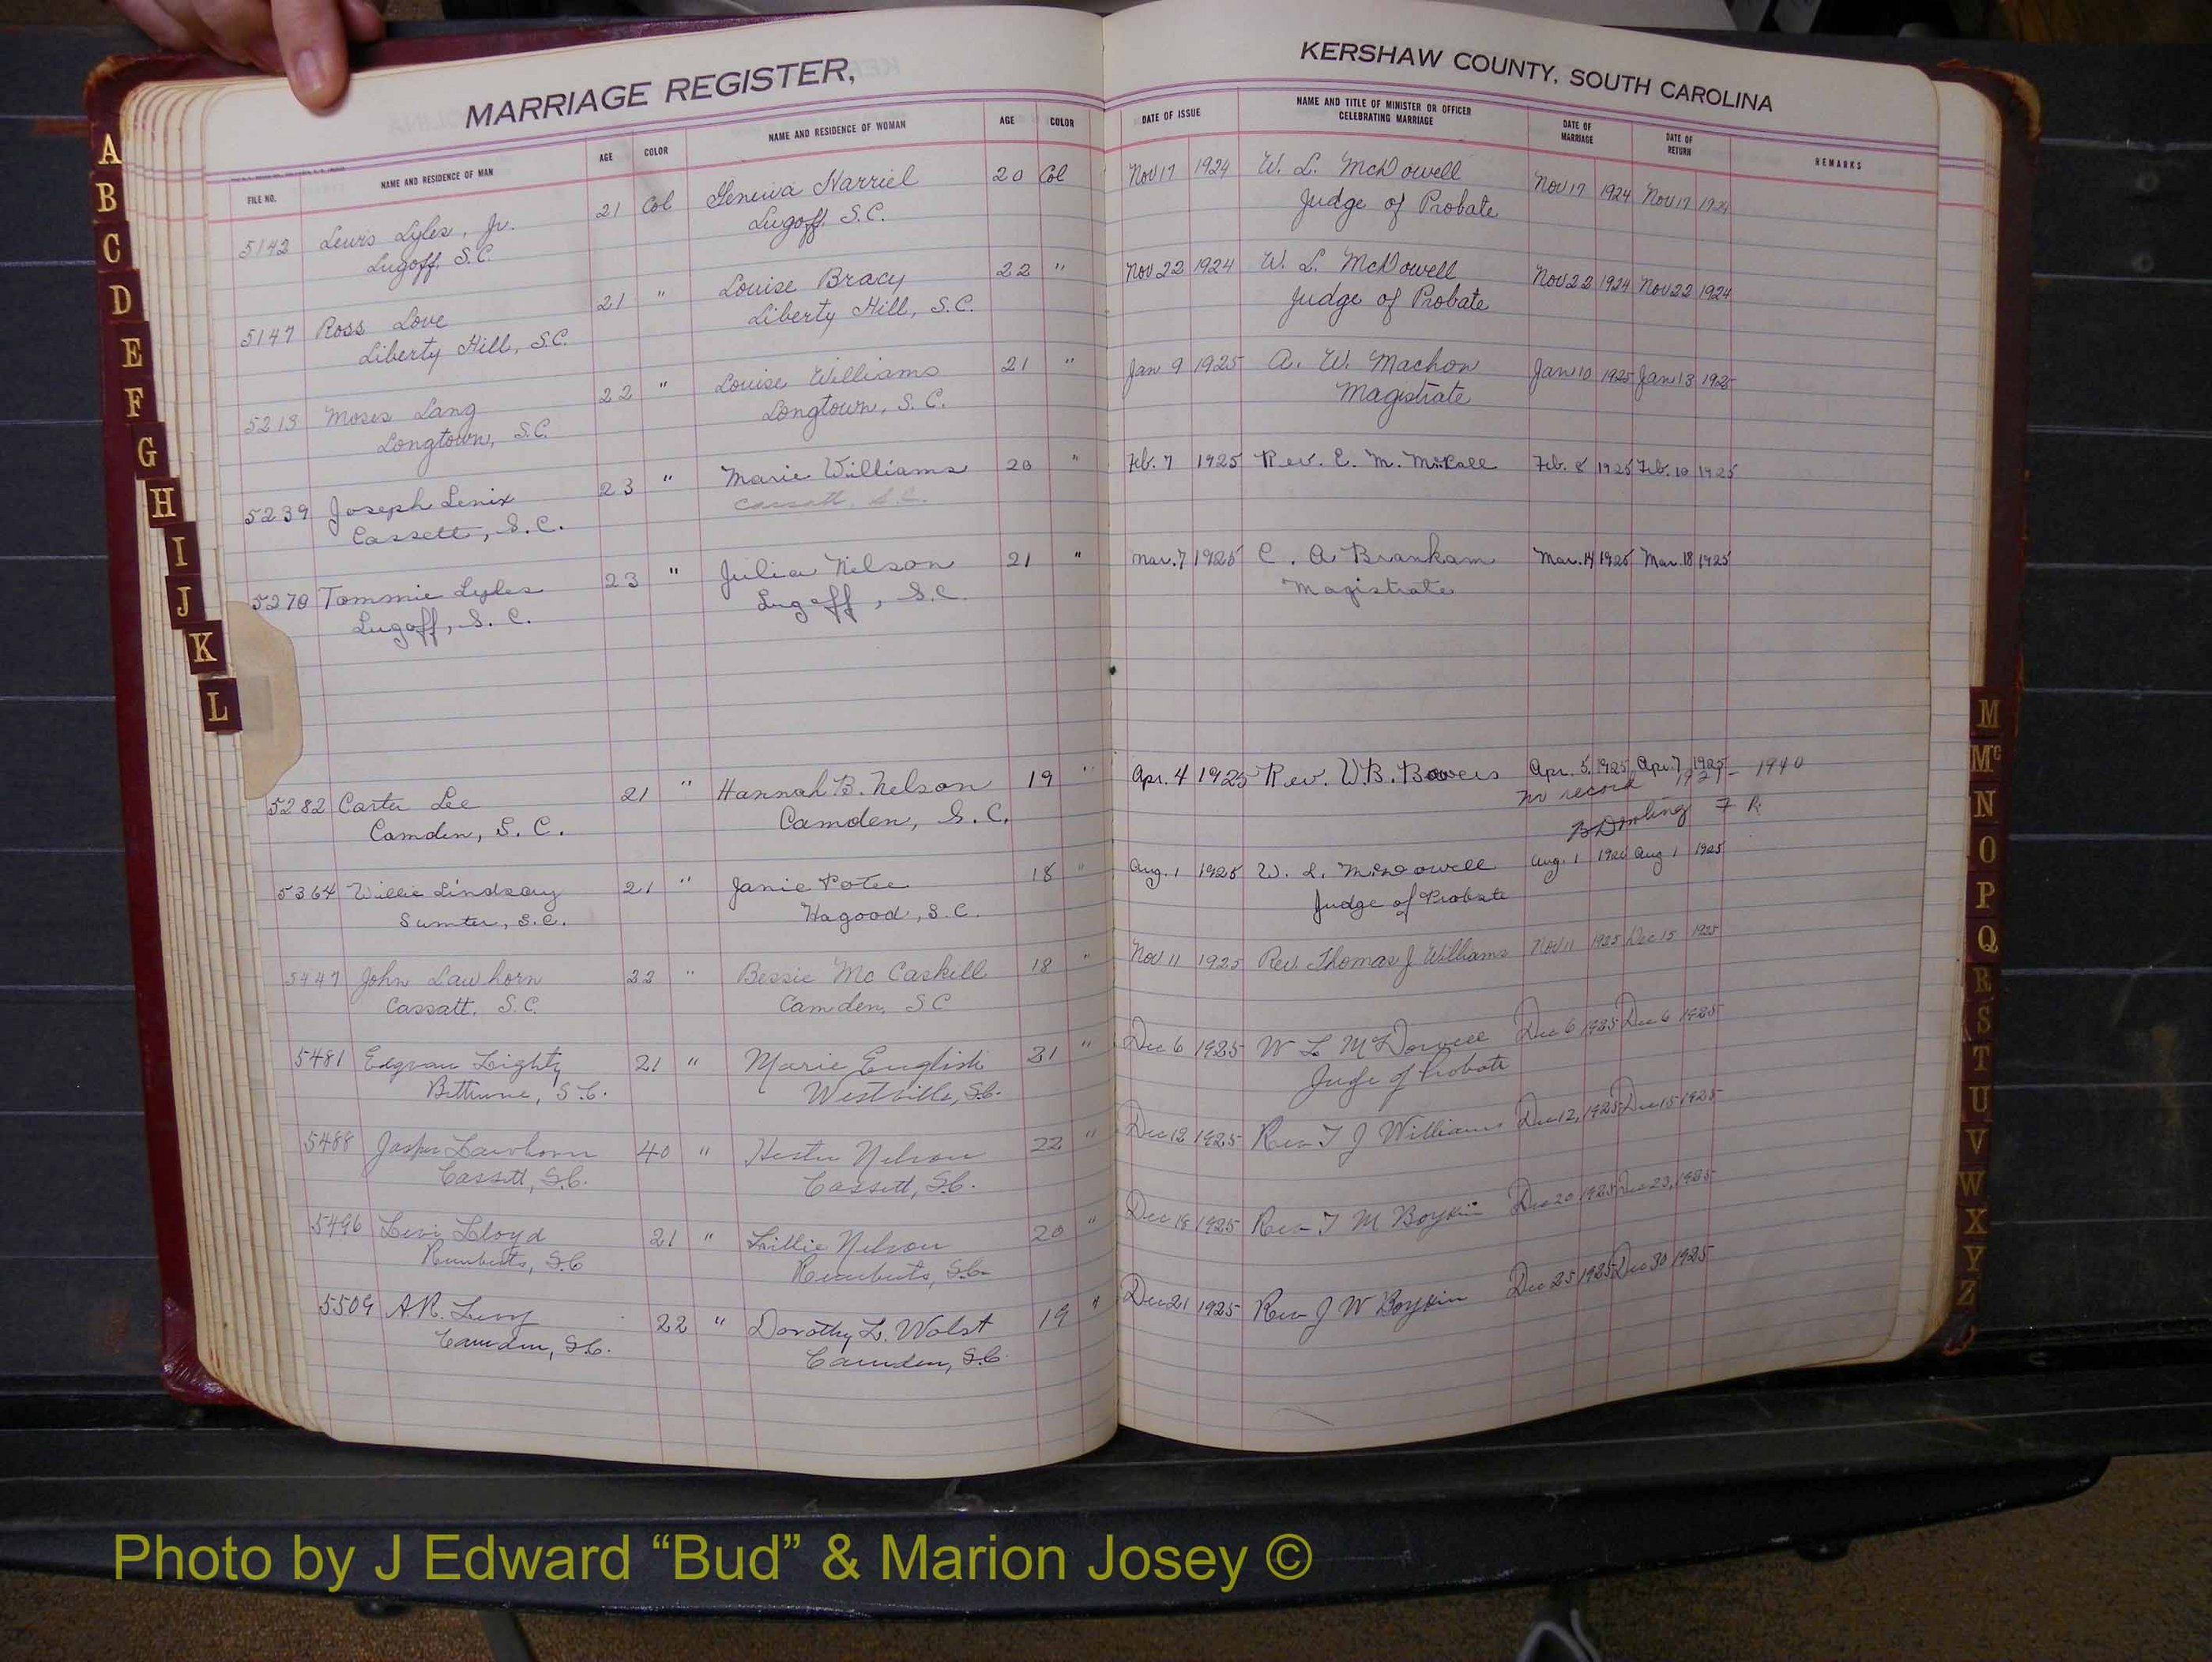 MARRIAGE REGISTER,
KERSHAW COUNTY, SOUTH CAROLINA
FILE NO. NAME AND RESIDENCE OF MAN AGE COLOR NAME AND RESIDENCE OF WOMAN AGE COLOR DATE OF ISSUE NAME AND TITLE OF MINISTER OR OFFICER CELEBRATING MARRIAGE DATE OF MARRIAGE DATE OF RETURN REMARKS
5142 Lewis Lyles, Jr. 21 Col Geneiva Harriel 20 Col Nov 17 1924 W. L. McDowell Nov 17 1924 Nov 17 1924
Lugoff, S.C. Lugoff, S.C. Judge of Probate
5147 Ross Love 21 " Louise Bracy 22 " Nov 22 1924 W. L. McDowell Nov 22 1924 Nov 22 1924
Liberty Hill, S.C. Liberty Hill, S.C. Judge of Probate
5213 Moses Lang 22 " Louise Williams 21 " Jan 9 1925 A. W. Machon Jan 10 1925 Jan 13 1925
Longtown, S.C. Longtown, S.C. Magistrate
5239 Joseph Lenix 23 " Marie Williams 20 " Feb. 7 1925 Rev. E. M. McCall Feb. 8 1925 Feb. 10 1925
Cassett, S.C. Cassatt, S.C.
5270 Tommie Lyles 23 " Julia Nelson 21 " Mar. 7 1925 C. A Brankam Mar. 14 1925 Mar. 18 1925
Lugoff, S.C. Lugoff, S.C. Magistrate
5282 Carter Lee 21 " Hannah B. Nelson 19 " Apr. 4 1925 Rev. W.B. Bowers Apr. 5, 1925 Apr. 7 1925
Camden, S.C. Camden, S.C. no record 1921 - 1940
5364 Willie Lindsay 21 " Janie Potee 18 " Aug. 1 1925 W. L. McDowell Aug. 1 1925 Aug 1 1925
Sumter, S.C. Hagood, S.C. Judge of Probate
5447 John Lawhorn 22 " Bessie McCaskill 18 " Nov 11 1925 Rev. Thomas J. Williams Nov 11 1925 Dec 15 1925
Cassatt, S.C. Camden, S.C
5481 Lighty 21 " Marie English 21 " Dec 6 1925 W L McDowell Dec 6 1925 Dec 6 1925
Bethune, S.C. Westville, S.C. Judge of Probate
5488 Jasper Lawhorn 40 " Hester Nelson 22 " Dec 12 1925 Rev T J Williams Dec 12, 1925 Dec 15 1925
Cassett, S.C. Cassett, S.C.
5496 Levi Lloyd 21 " Lillie Nelson 20 " Dec 18 1925 Rev T M Boykin Dec 20 1925 Dec 23, 1925
Remberts, S.C Remberts, S.C.
5509 A.R. Levy 22 " Dorothy L. Wolst 19 " Dec 21 1925 Rev J W Boykin Dec 25 1925 Dec 30 1925
Camden, S.C. Camden, S.C.
A
B
C
D
E
F
G
H
I
J
K
L
M
Mc
N
O
P
Q
R
S
T
U
V
W
X
Y
Z
Photo by J Edward “Bud” & Marion Josey ©